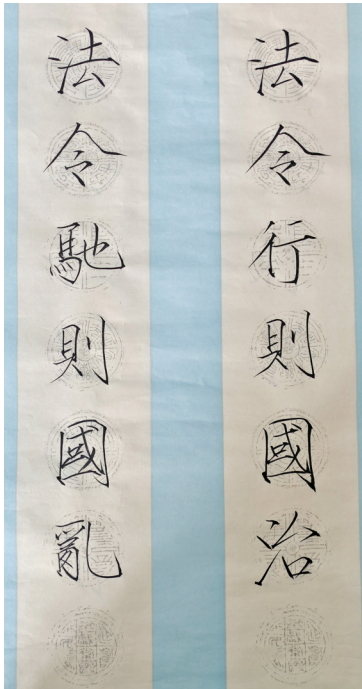 法令行則國治
法令馳則國亂